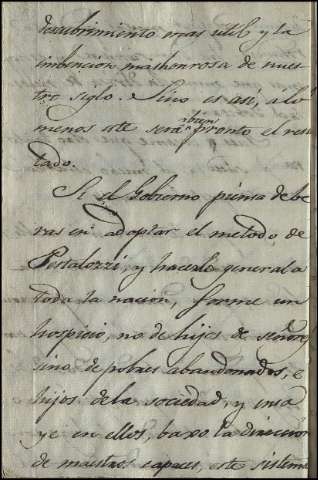 descubrimiento mas util y la
imbencion mas honrosa de nues-
tro siglo. Sino es así, a lo
menos este será bien pronto el resul
tado.
Si el Gobierno piensa de be
ras en adoptar el metodo de
Pestalozzi, y hacerlo general a
toda la nacion, forme un
hospicio, no de hijos de señores
sino de pobres abandonados, e
hijos de la sociedad, y ensa
ye en ellos, baxo la direccion
de maestros capaces, este sistema